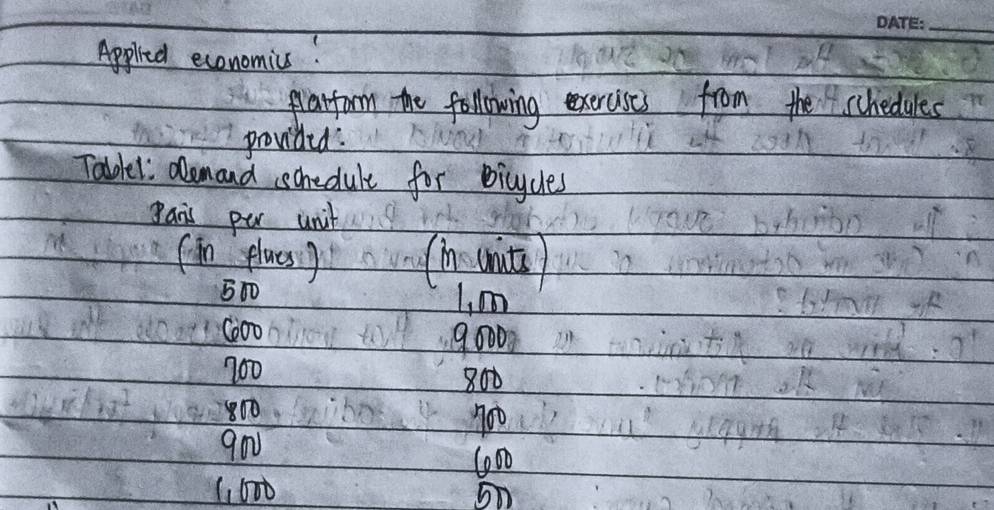 DATE:
Applied economics:
platform the following exercises from the schedules
provided:
Table1: demand schedule for Bicycles
per unit
(in (in units)
500 1,000
600 9,000
700 800
800 700
900 600
1,000 500